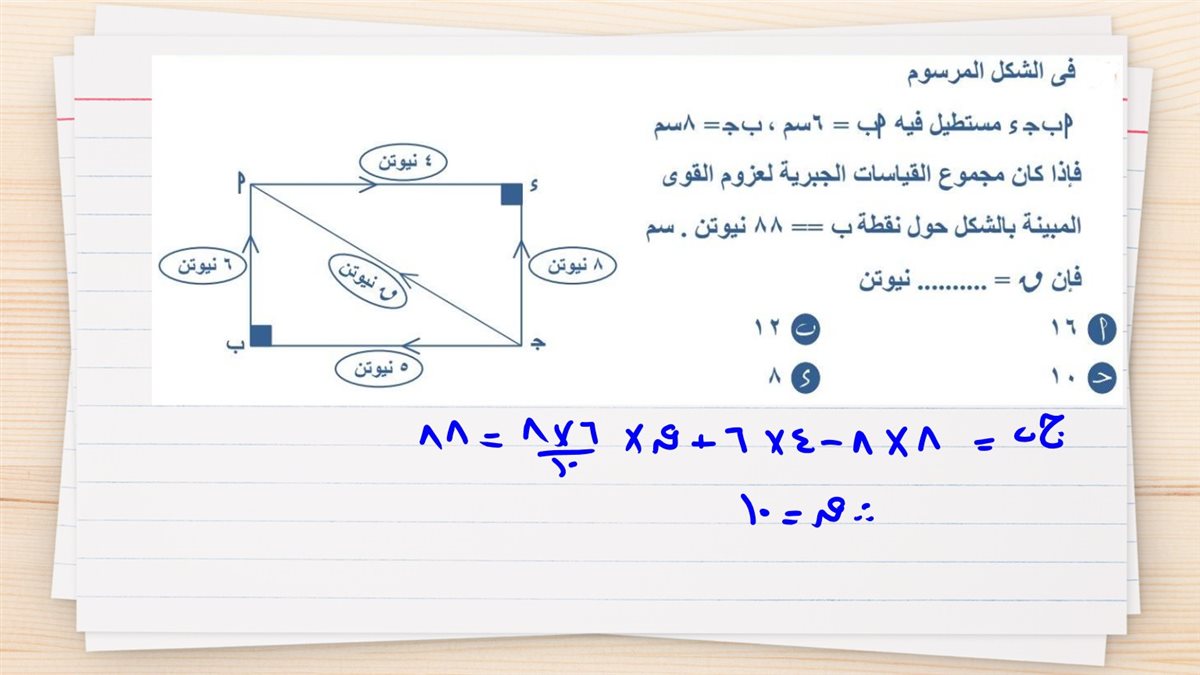 فى الشكل المرسوم
‏م‏ب جـ ء مستطيل فيه م‏ب = ٦سم ، ب جـ= ٨سم
فإذا كان مجموع القياسات الجبرية لعزوم القوى
المبينة بالشكل حول نقطة ب == ٨٨ نيوتن . سم
فإن ق = .......... نيوتن
م ١٦
ب ١٢
حـ ١٠
ء ٨
٤ نيوتن
م
ء
٦ نيوتن
ق نيوتن
٨ نيوتن
ب
جـ
٥ نيوتن
ج ب = ٨ × ٨ − ٤ × ٦ + ق × ٦×٨/١٠ = ٨٨
∴ ق = ١٠